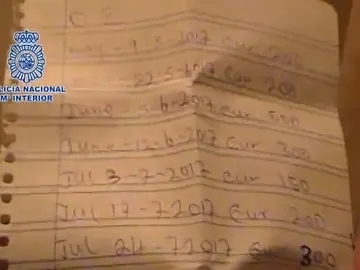 POLICÍA NACIONAL
Mº INTERIOR
9-5-2017 Eur 200
22-5-2017 Eur 200
June 5-6-2017 Eur 500
June -12-6-2017 Eur 200
Jul 3-7-2017 Eur 150
Jul 17-7 2017 Eur 200
Jul 24-7 2017 Eur 300